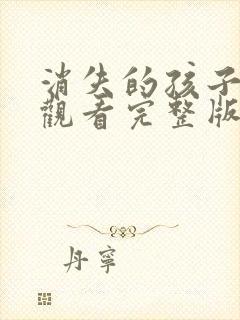 消失的孩子
觀看完整版
丹寧